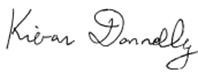 Kieran Donnelly